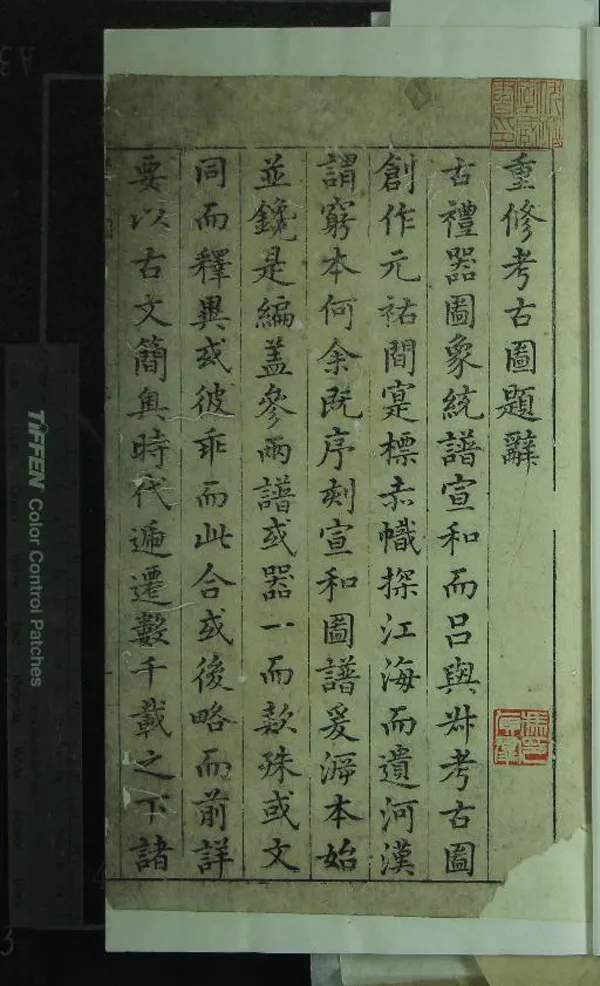 重修考古圖題辭
古禮器圖象統譜宣和而呂與叔考古圖
創作元祐間寔標赤幟探江海而遺河漢
謂窮本何余既序刻宣和圖譜爰溯本始
並鑱是編盖參兩譜或器一而款殊或文
同而釋異或彼乖而此合或後略而前詳
要以古文簡奥時代遞遷數千載之下諸
TIFFEN Color Control Patches